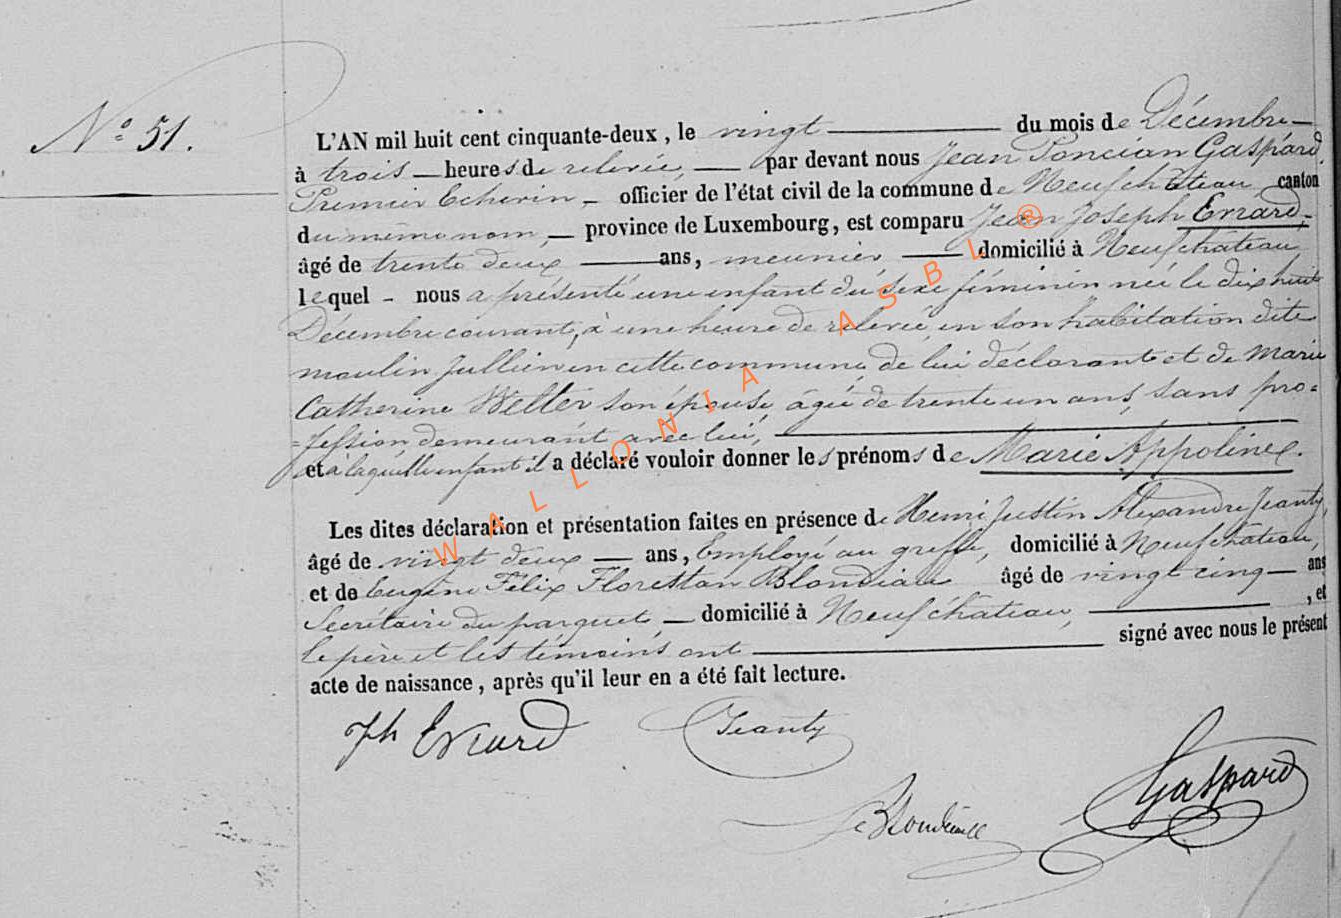 N° 51.
L'AN mil huit cent cinquante-deux, le vingt du mois de Décembre
à trois heures de relevée, par devant nous Jean Poncian Gaspard,
Premier Echevin, officier de l'état civil de la commune de Neufchâteau canton
du même nom, province de Luxembourg, est comparu Jean Joseph Evrard,
âgé de trente deux ans, meunier domicilié à Neufchâteau,
lequel nous a présenté une enfant du sexe féminin née le dix huit
Décembre courant, à une heure de relevée, en son habitation dite
moulin Jullien en cette commune, de lui déclarant et de Marie
Catherine Welter son épouse, agée de trente un ans, sans pro=
=fession demeurant avec lui,
et à laquelle enfant il a déclaré vouloir donner les prénoms de Marie Appoline.
Les dites déclaration et présentation faites en présence de Henri Justin Alexandre Jeanty,
âgé de vingt deux ans, Employé au greffe, domicilié à Neufchâteau,
et de Eugène Félix Florestan Blondiau âgé de vingt cinq ans
Secrétaire du parquet, domicilié à Neufchâteau, , et
le père et les témoins ont signé avec nous le présent
acte de naissance, après qu'il leur en a été fait lecture.
Jph Evrard Jeanty
Gaspard
WALLONIA ASBL ®